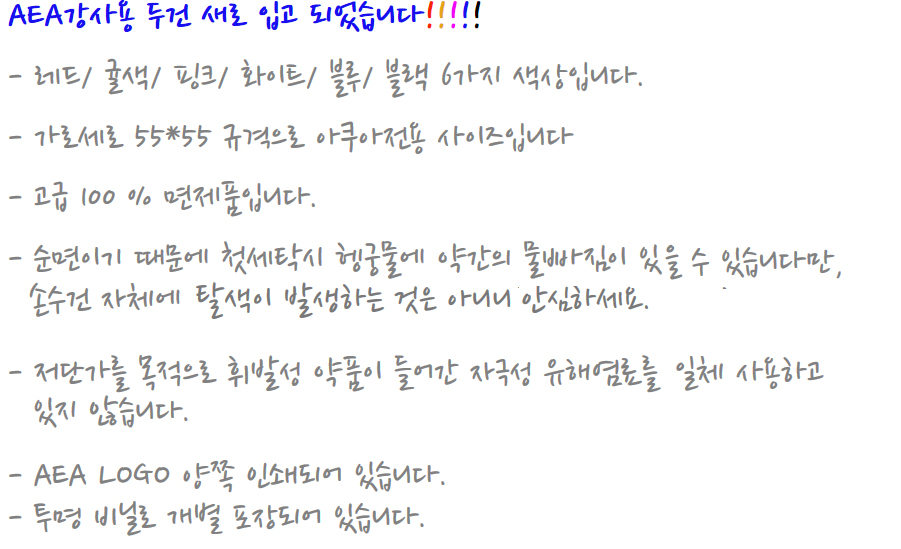 AEA강사용 두건 새로 입고 되었습니다!!!!!
- 레드/ 귤색/ 핑크/ 화이트/ 블루/ 블랙 6가지 색상입니다.
- 가로세로 55*55 규격으로 아쿠아전용 사이즈입니다
- 고급 100 % 면제품입니다.
- 순면이기 때문에 첫세탁시 헹궁물에 약간의 물빠짐이 있을 수 있습니다만,
손수건 자체에 탈색이 발생하는 것은 아니니 안심하세요.
- 저단가를 목적으로 휘발성 약품이 들어간 자극성 유해염료를 일체 사용하고
있지 않습니다.
- AEA LOGO 양쪽 인쇄되어 있습니다.
- 투명 비닐로 개별 포장되어 있습니다.